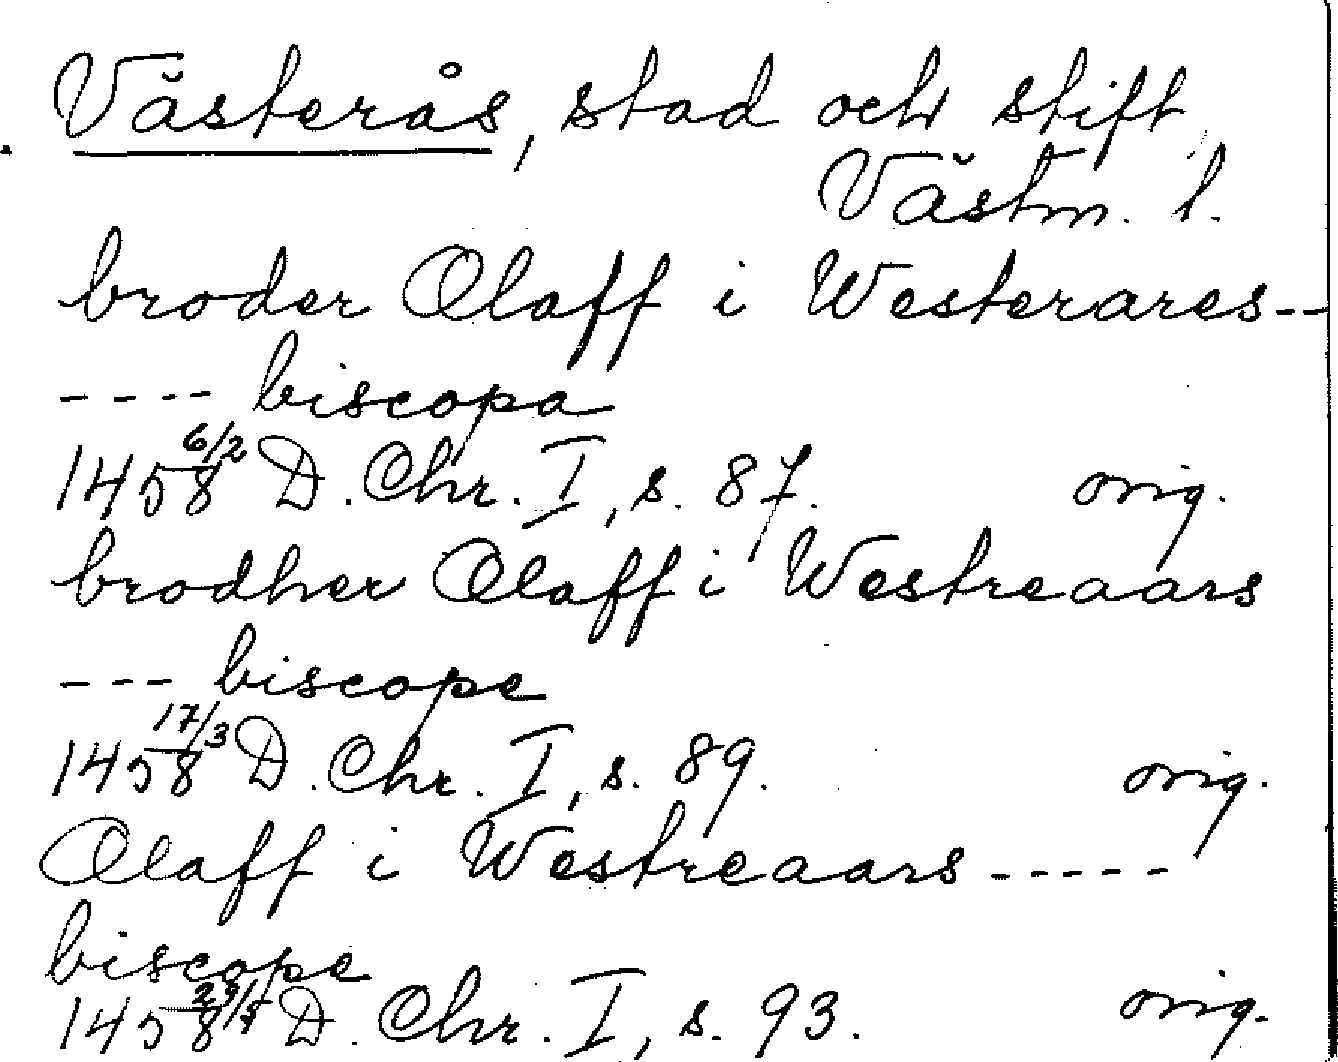 Västerås, stad och stift,
Västm. l.
broder Olaff i Westerares--
---- biscopa
1458 6/2 D. Chr. I, s. 87. orig.
brodher Olaff i Westreaars
--- biscope
1458 17/3 D. Chr. I, s. 89. orig.
Olaff i Westreaars -----
biscope
1458 D. Chr. I, s. 93. orig.